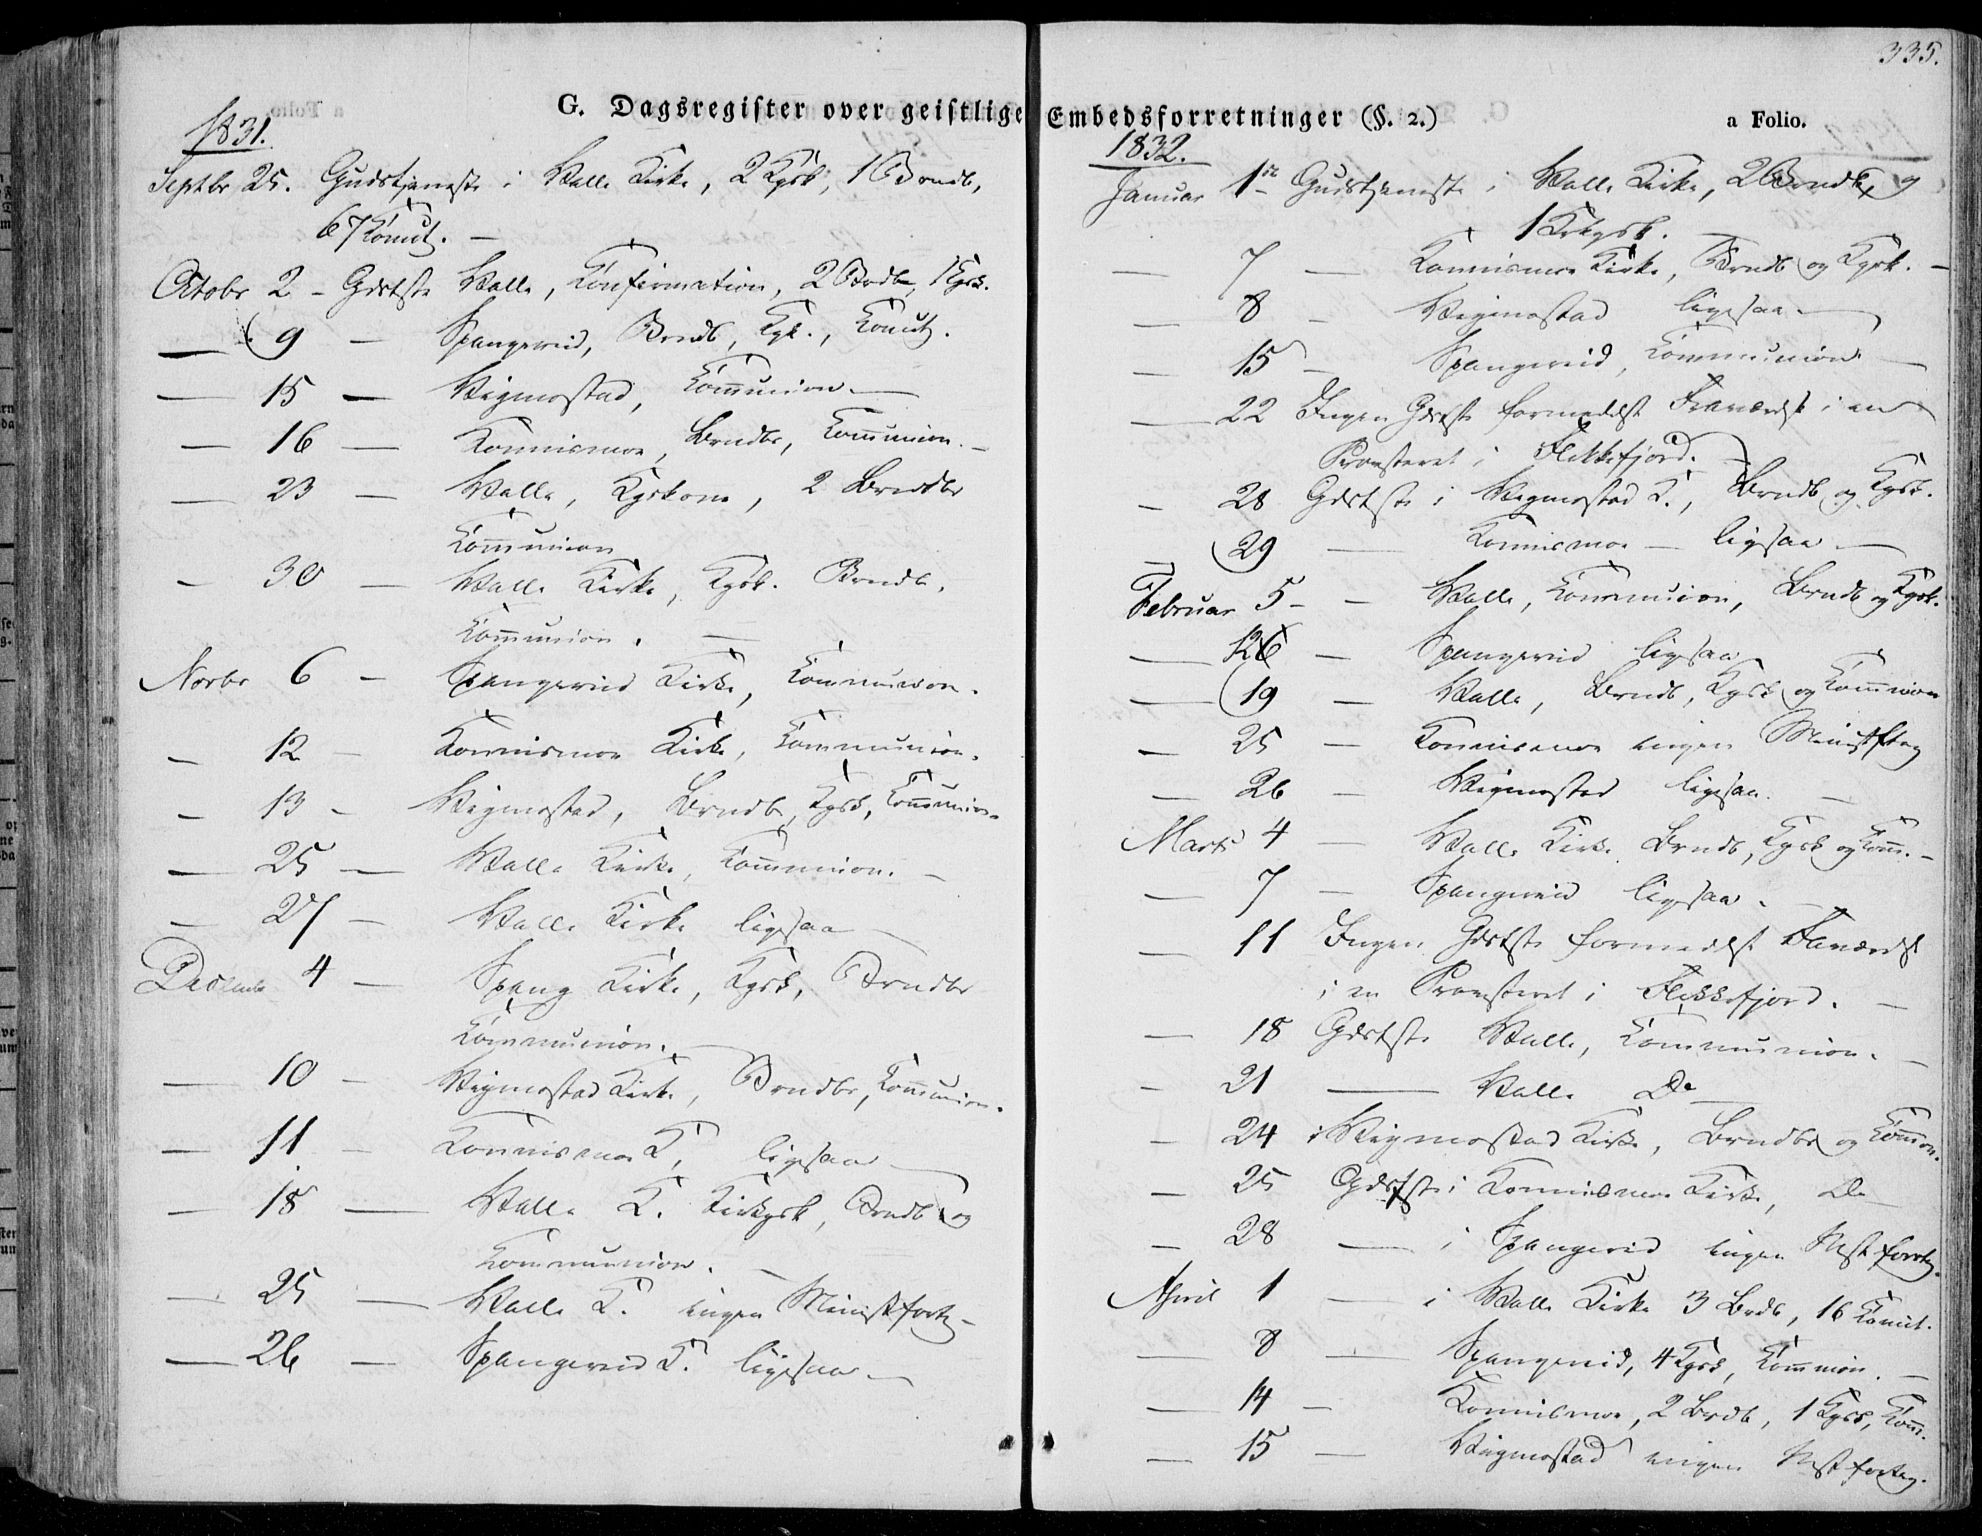 335.
G. Dagsregister over geistlige Embedsforretninger (§. 2.)
a Folio.
1831.
Septbr 25. Gudstjeneste i Walle Kirke, 2 Kgsk, 1 Brndb,
67 Com̄ut. —
Octobr 2 – Gdstste Walle, Confirmation, 2 Brdb, 1 Kgsk.
— 9 — Spangereid, Brndb, Kgk., Com̄ut.
— 15 — Vigmostad, Com̄union. —
— 16 — Konnismoe, Brndb, Com̄union. —
— 23 — Walle, Kgskone, 2 Brndb
Com̄union
— 30 — Walle Kirke, Kgsk. Brndb.
Com̄union. —
Novbr 6 – Spangereid Kirke, Communion.
— 12 — Konnismoe Kirke, Communion.
— 13 – Vigmostad, Brndb, Kgsk, Com̄union.
— 25 — Walle Kirke, Com̄union. —
— 27 — Walle Kirke ligesaa —
Decembr 4 — Spang Kirke, Kgsk, Brndb
Communion. —
— 10 – Vigmostad Kirke, Brndb, Com̄union.
— 11 – Konnismoe K, ligesaa —
— 18 — Walle K. Kirkgsk, Brndb og
Communion. —
— 25 — Walle K. ingen Ministfortg —
— 26 — Spangereid K. ligesaa —
1832.
Januar 1ste Gudstjeneste i Walle Kirke, 2 Brndb, og
1 Kirkgsk. —
— 7 — Konnismoe Kirke, Brndb og Kgsk. —
— 8 – Vigmostad ligesaa —
— 15 – Spangereid, Communion —
— 22 Ingen Gdstste formedelst Fraværelse i en
Provsteret i Flekkefjord. —
— 28 Gdstste i Vigmostad K., Brndb og Kgsk.
— 29 — Konnismoe — ligesaa —
Februar 5 – — Walle, Communion, Brndb og Kgsk.
— 12 — Spangereid ligesaa
— 19 – Walle, Brndb, Kgsk og Com̄union
— 25 — Konnismoe ingen Ministftng
— 26 – Vigmostad ligesaa. —
Marts 4 — Walle Kirke Brndb, Kgsk og Com̄. —
— 7 — Spangereid ligesaa. —
— 11 Ingen Gdstste formedelst Fraværelse
i en Provsteret i Flekkefjord. —
— 18 Gdstste Walle, Communion. —
— 21 — Walle Do
— 24 i Vigmostad Kirke, Brndb og Com̄on.
— 25 Gdstste i Konnismoe Kirke, Do
— 28 — i Spangereid ingen Mstforrtg.
April 1 — i Walle Kirke 3 Brdb, 16 Comut.
— 8 — Spangereid, 4 Kgsk, Com̄nion. —
— 14 – Konnismoe, 2 Brdb, 1 Kgsk, Com̄.
— 15 — Vigmostad ingen Mstfortng.